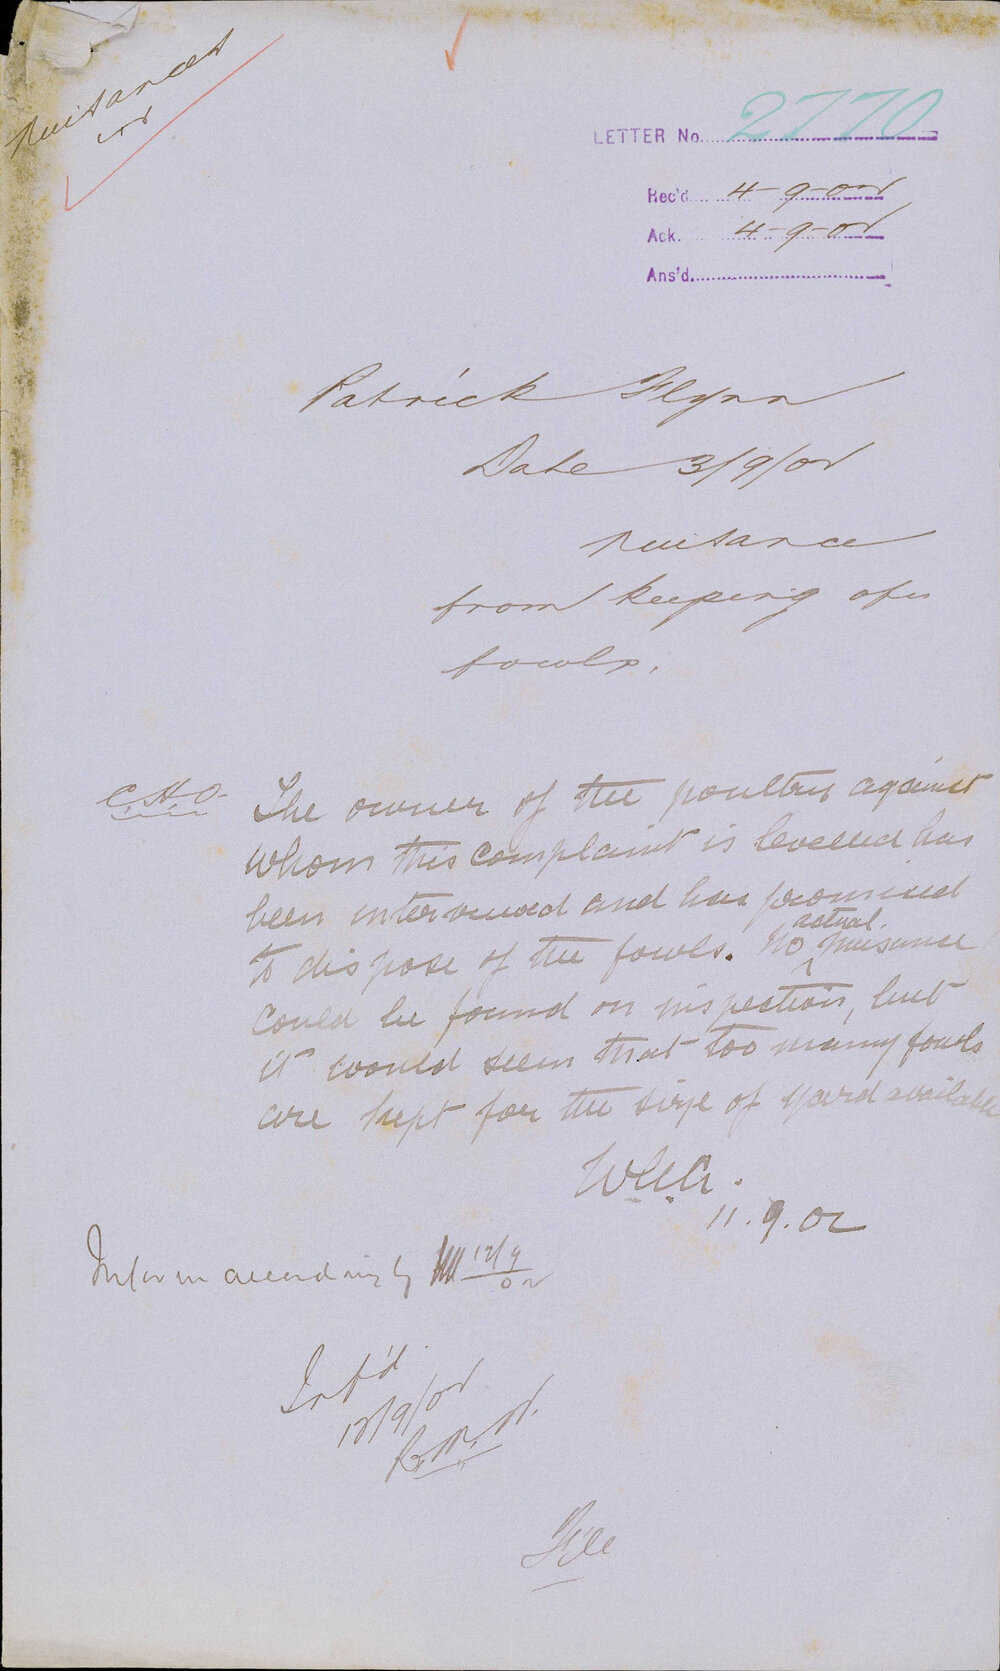 Nuisances
LETTER No. 2770
Rec'd. 4-9-02
Ack. 4-9-02
Ans'd.
Patrick Flynn
Date 3/9/02
Nuisance
from keeping of
fowls.
C.H.O. The owner of the poultry against
whom this complaint is levelled has
been interviewed and has promised
to dispose of the fowls. No actual nuisance
could be found on inspection, but
it would seem that too many fowls
are kept for the size of yard available
11.9.02
Inform accordingly 12/9/02
Inf'd.
12/9/02
File